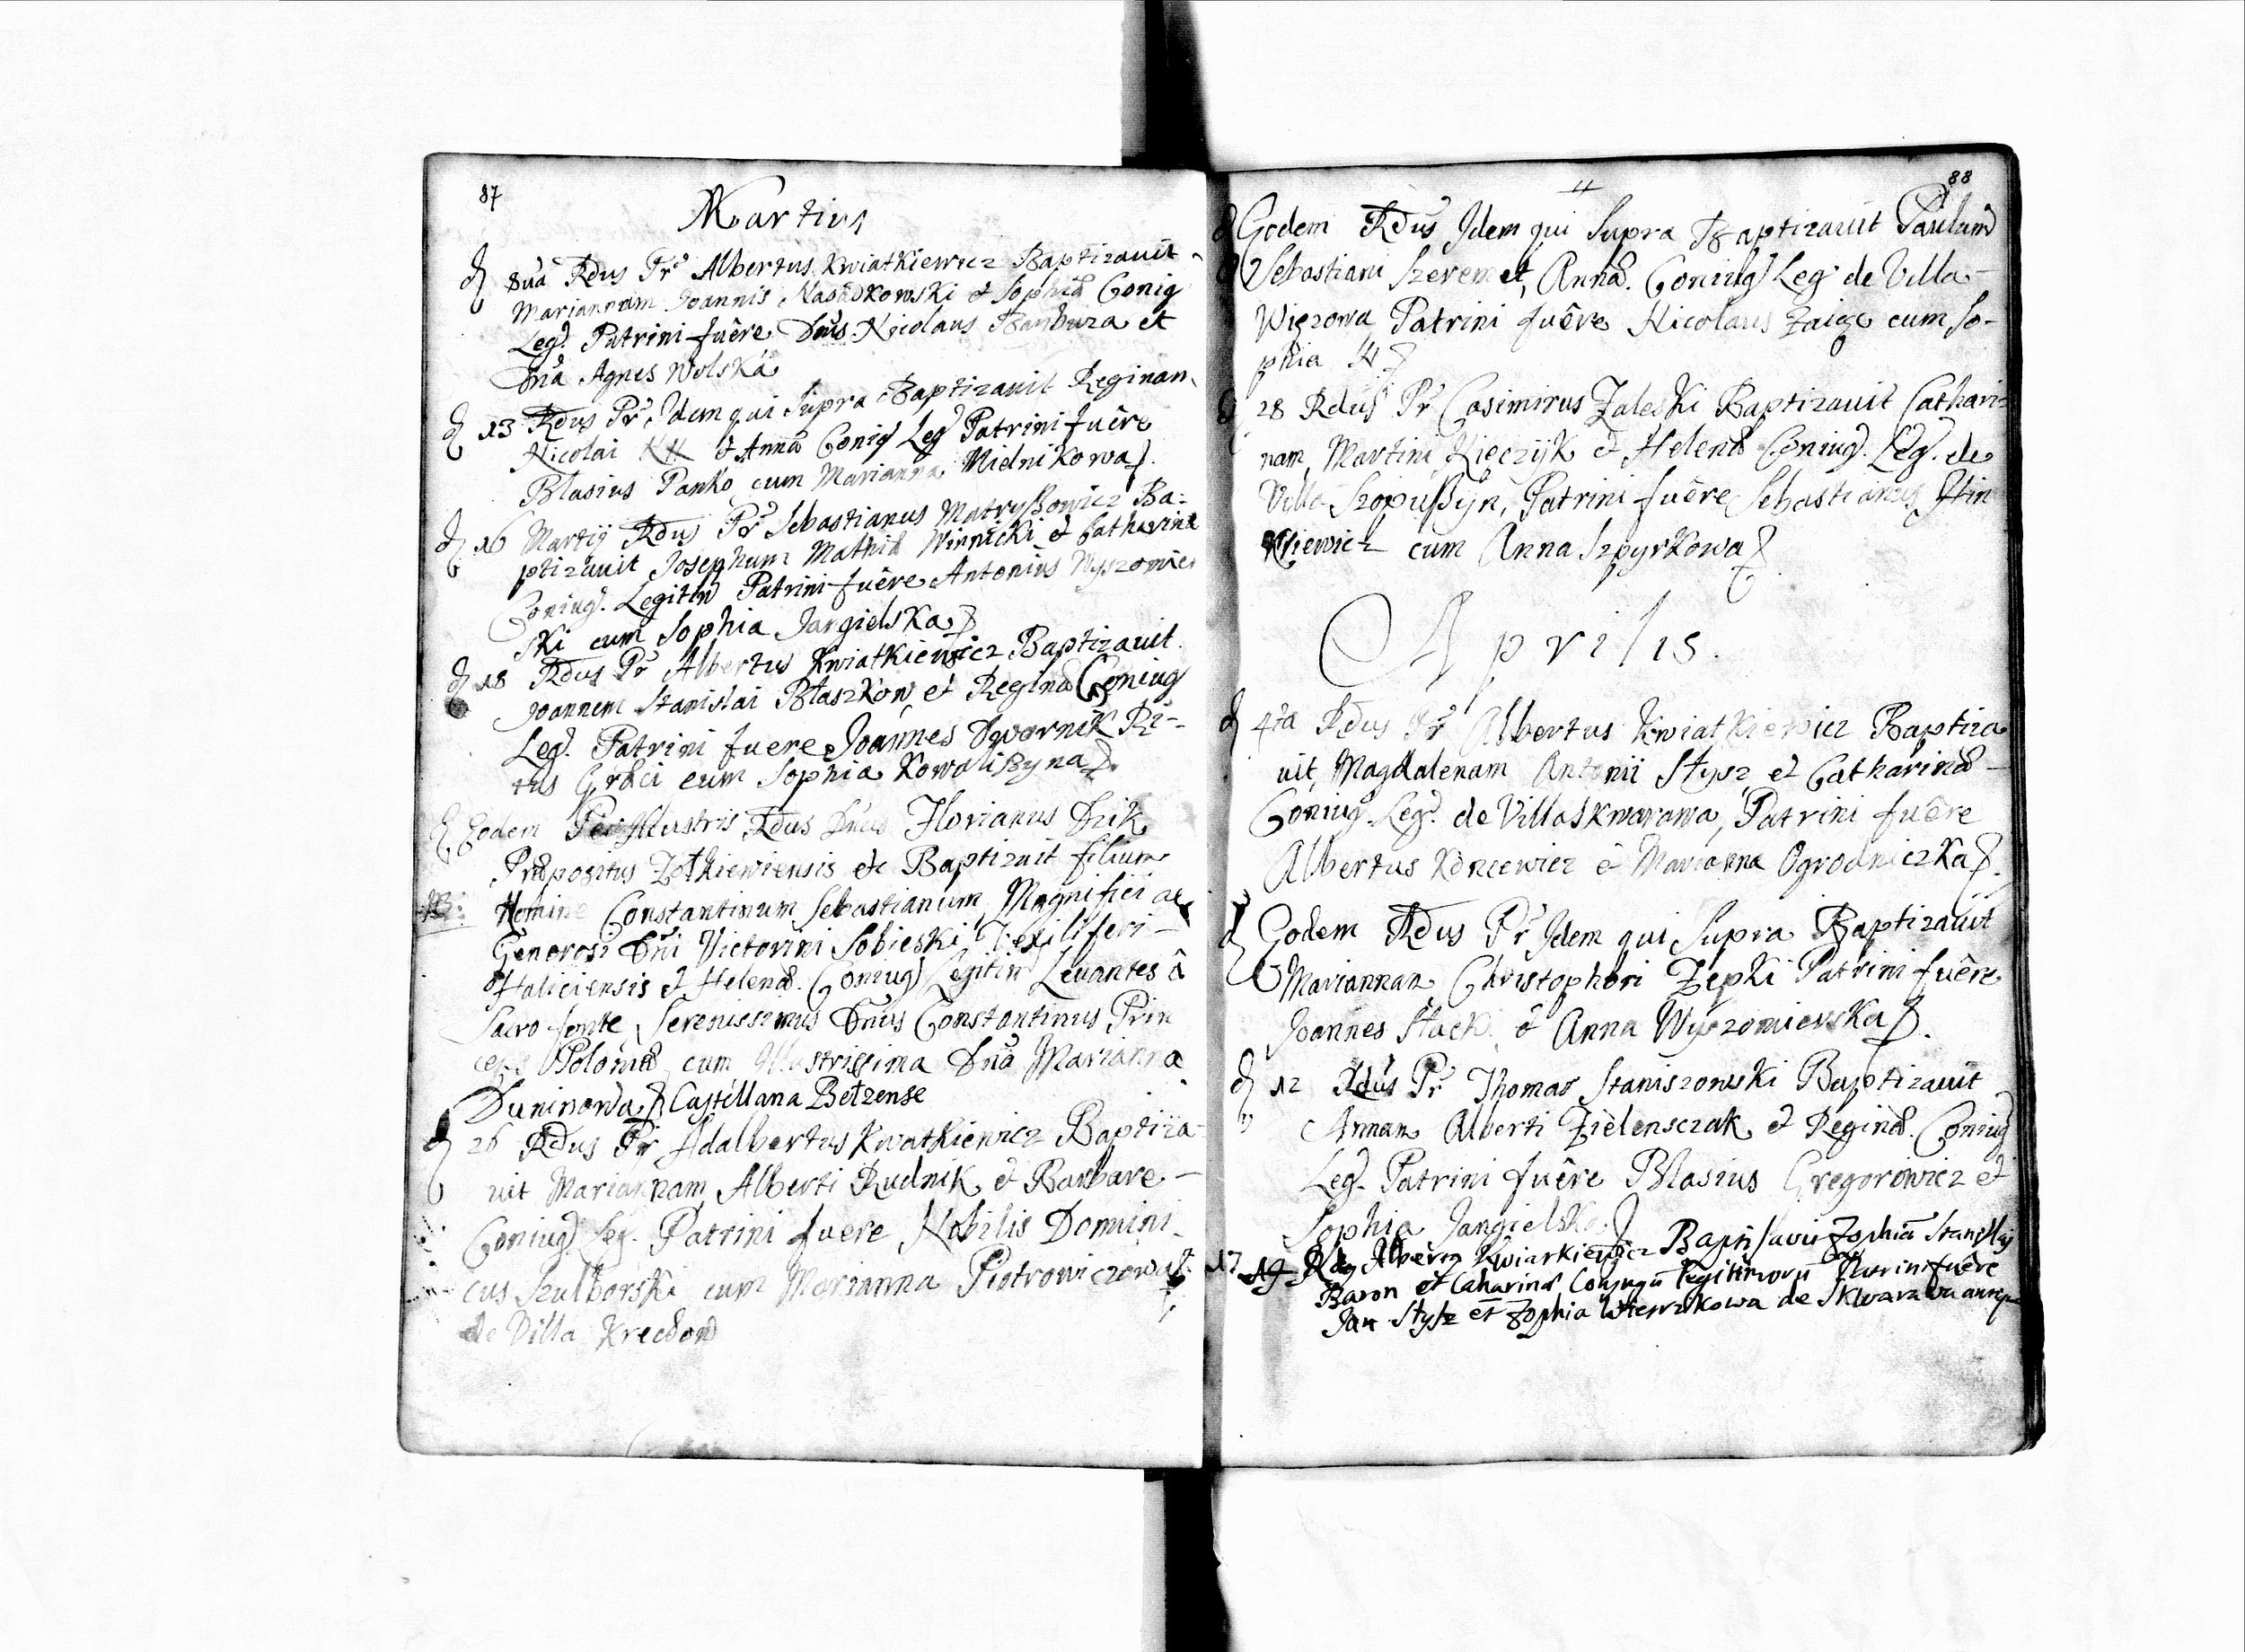 87
Martius
d 8va Rdus Pr Albertus Kwiatkiewicz Baptizauit
Mariannam Joannis Nasadkowski et Sophiæ Coniug
Leg. Patrini fuêre Dnus Nicolaus Bambuza et
Dna Agnes Wolska
d 13 Rdus Pr Idem qui Supra Baptizauit Reginam
Nicolai et Annæ Coniug Leg Patrini fuêre
Blasius Panko cum Marianna Mielnikowa
d 16 Martij Rdus Pr Sebastianus Matryßowicz Ba-
ptizauit Josephum Mathiæ Winnicki et Catharinæ
Coniug. Legitim Patrini fuêre Antonius Wyszomier
ski cum Sophia Jargielska
d 18 Rdus Pr Albertus Kwiatkiewicz Baptizauit
Joannem Stanislai Błaszkow et Reginæ Coniug
Leg. Patrini fuere Joannes Dwornik Ri-
tus Græci cum Sophia Kowaliszyna
d Eodem Perillustris Rdus Dnus Florianus Dzik
Præpositus Zołkiewiensis etc Baptizuit filium
Nomine Constantinum Sebastianum Magnifici ac
Generosi Dni Victorini Sobieski Vexiliferi
Haliciensis et Helenæ Coniug Legitim Leuantes â
Sacro fonte Serenissimus Dnus Constantinus Prin
ceps Poloniæ cum Illustrissima Dna Marianna
Duninowa Castellana Bełzense
d 26 Rdus Pr Adalbertus Kwatkiewicz Baptiza-
uit Mariannam Alberti Rudnik et Barbare
Coniug Leg. Patrini fuere Nobilis Domini-
cus Szulborski cum Marianna Piotrowiczowa
de Villa Krechow
88
d Eodem Rdus Idem qui Supra Baptizauit Paulum
Sebastiani Szeren et Annæ Coniug Leg de Villa
Więzowa Patrini fuêre Nicolaus Zaige cum So-
phia
d 28 Rdus Pr Casimirus Zaleski Baptizauit Cathari-
nam Martini Kieczyk et Helenæ Coniug. Leg. de
Villa Szopußyn, Patrini fuêre Sebastianus Hin
kiewicz cum Anna Szpyrkowa
Aprilis.
d 4ta Rdus Pr Albertus Kwiatkiewicz Baptiza
uit Magdalenam Antonii Stysz et Catharinæ
Coniug. Leg. de Villa Skwarawa, Patrini fuêre
Albertus Koncewicz è Marianna Ogrodniczka
d Eodem Rdus Pr Idem qui Supra Baptizauit
Mariannam Christophori Zepki Patrini fuêre
Joannes Stack è Anna Wyszomierska
d 12 Rdus Pr Thomas Staniszowski Baptizauit
Annam Alberti Zielensczak et Reginæ. Coniug
Leg. Patrini fuêre Blasius Gregorowicz et
Sophia Jargielska
17 Rdus Albertus Kwiatkiewicz Baptisauit Zophiā Stanislaj
Baron et Catharinæ Conjugū legitimorū Patrini fuêre
Jan Stysz et Zophia Wierzbkowa de Skwarawa